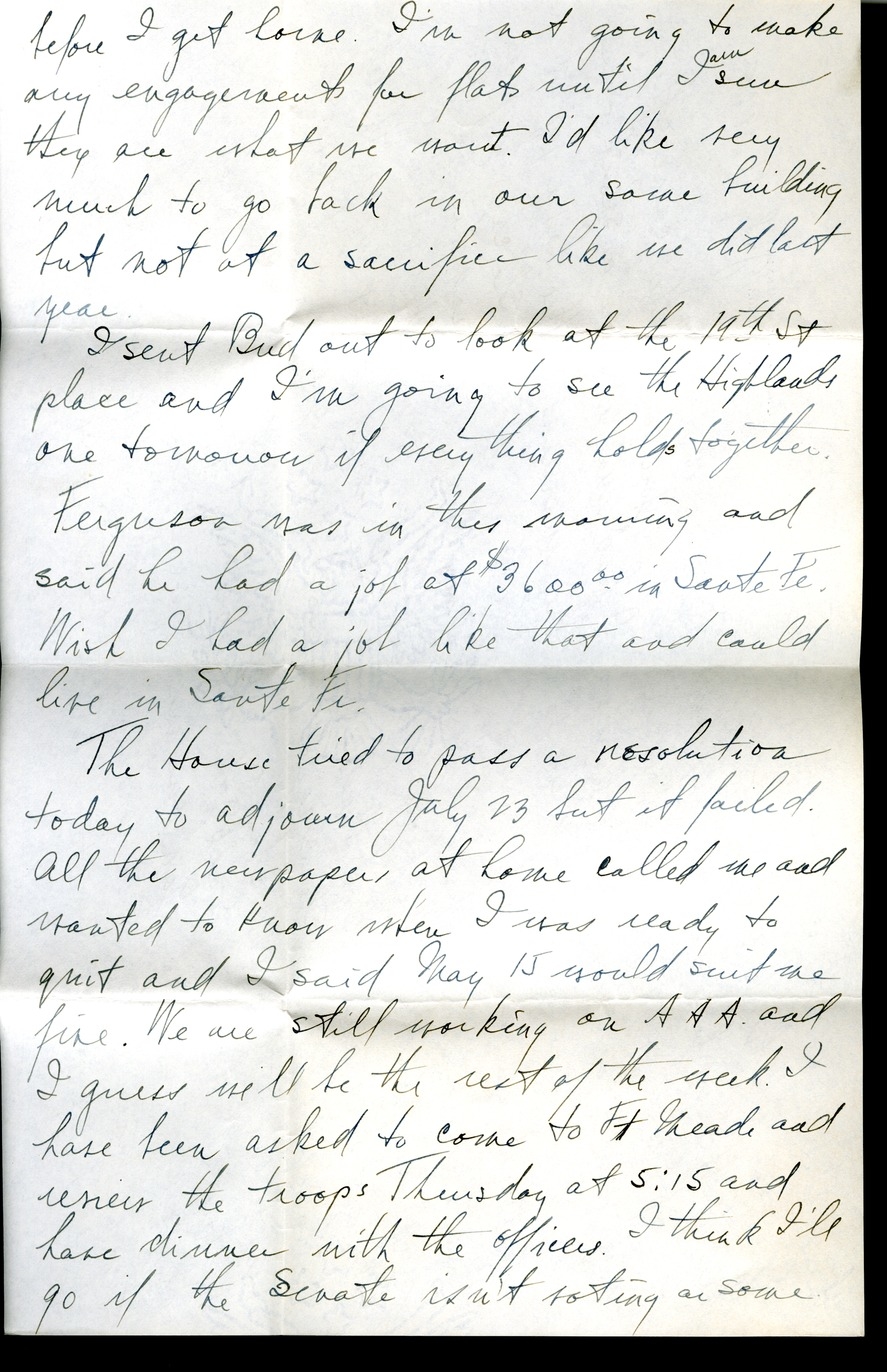 before I get home. I'm not going to make
any engagements for flats until I am sure
they are what we want. I'd like very
much to go back in our same building
but not at a sacrifice like we did last
year.
I sent Bud out to look at the 19th St
place and I'm going to see the Highlands
one tomorrow if everything holds together.
Ferguson was in this morning and
said he had a job at $3600.00 in Sante Fe.
Wish I had a job like that and could
live in Sante Fe.
The House tried to pass a resolution
today to adjourn July 23 but it failed.
All the newspapers at home called me and
wanted to know when I was ready to
quit and I said May 15 would suit me
fine. We are still working on AAA. and
I guess will be the rest of the week. I
have been asked to come to Ft Meade and
review the troops Thursday at 5:15 and
have dinner with the officers. I think I'll
go if the Senate isn't voting or some